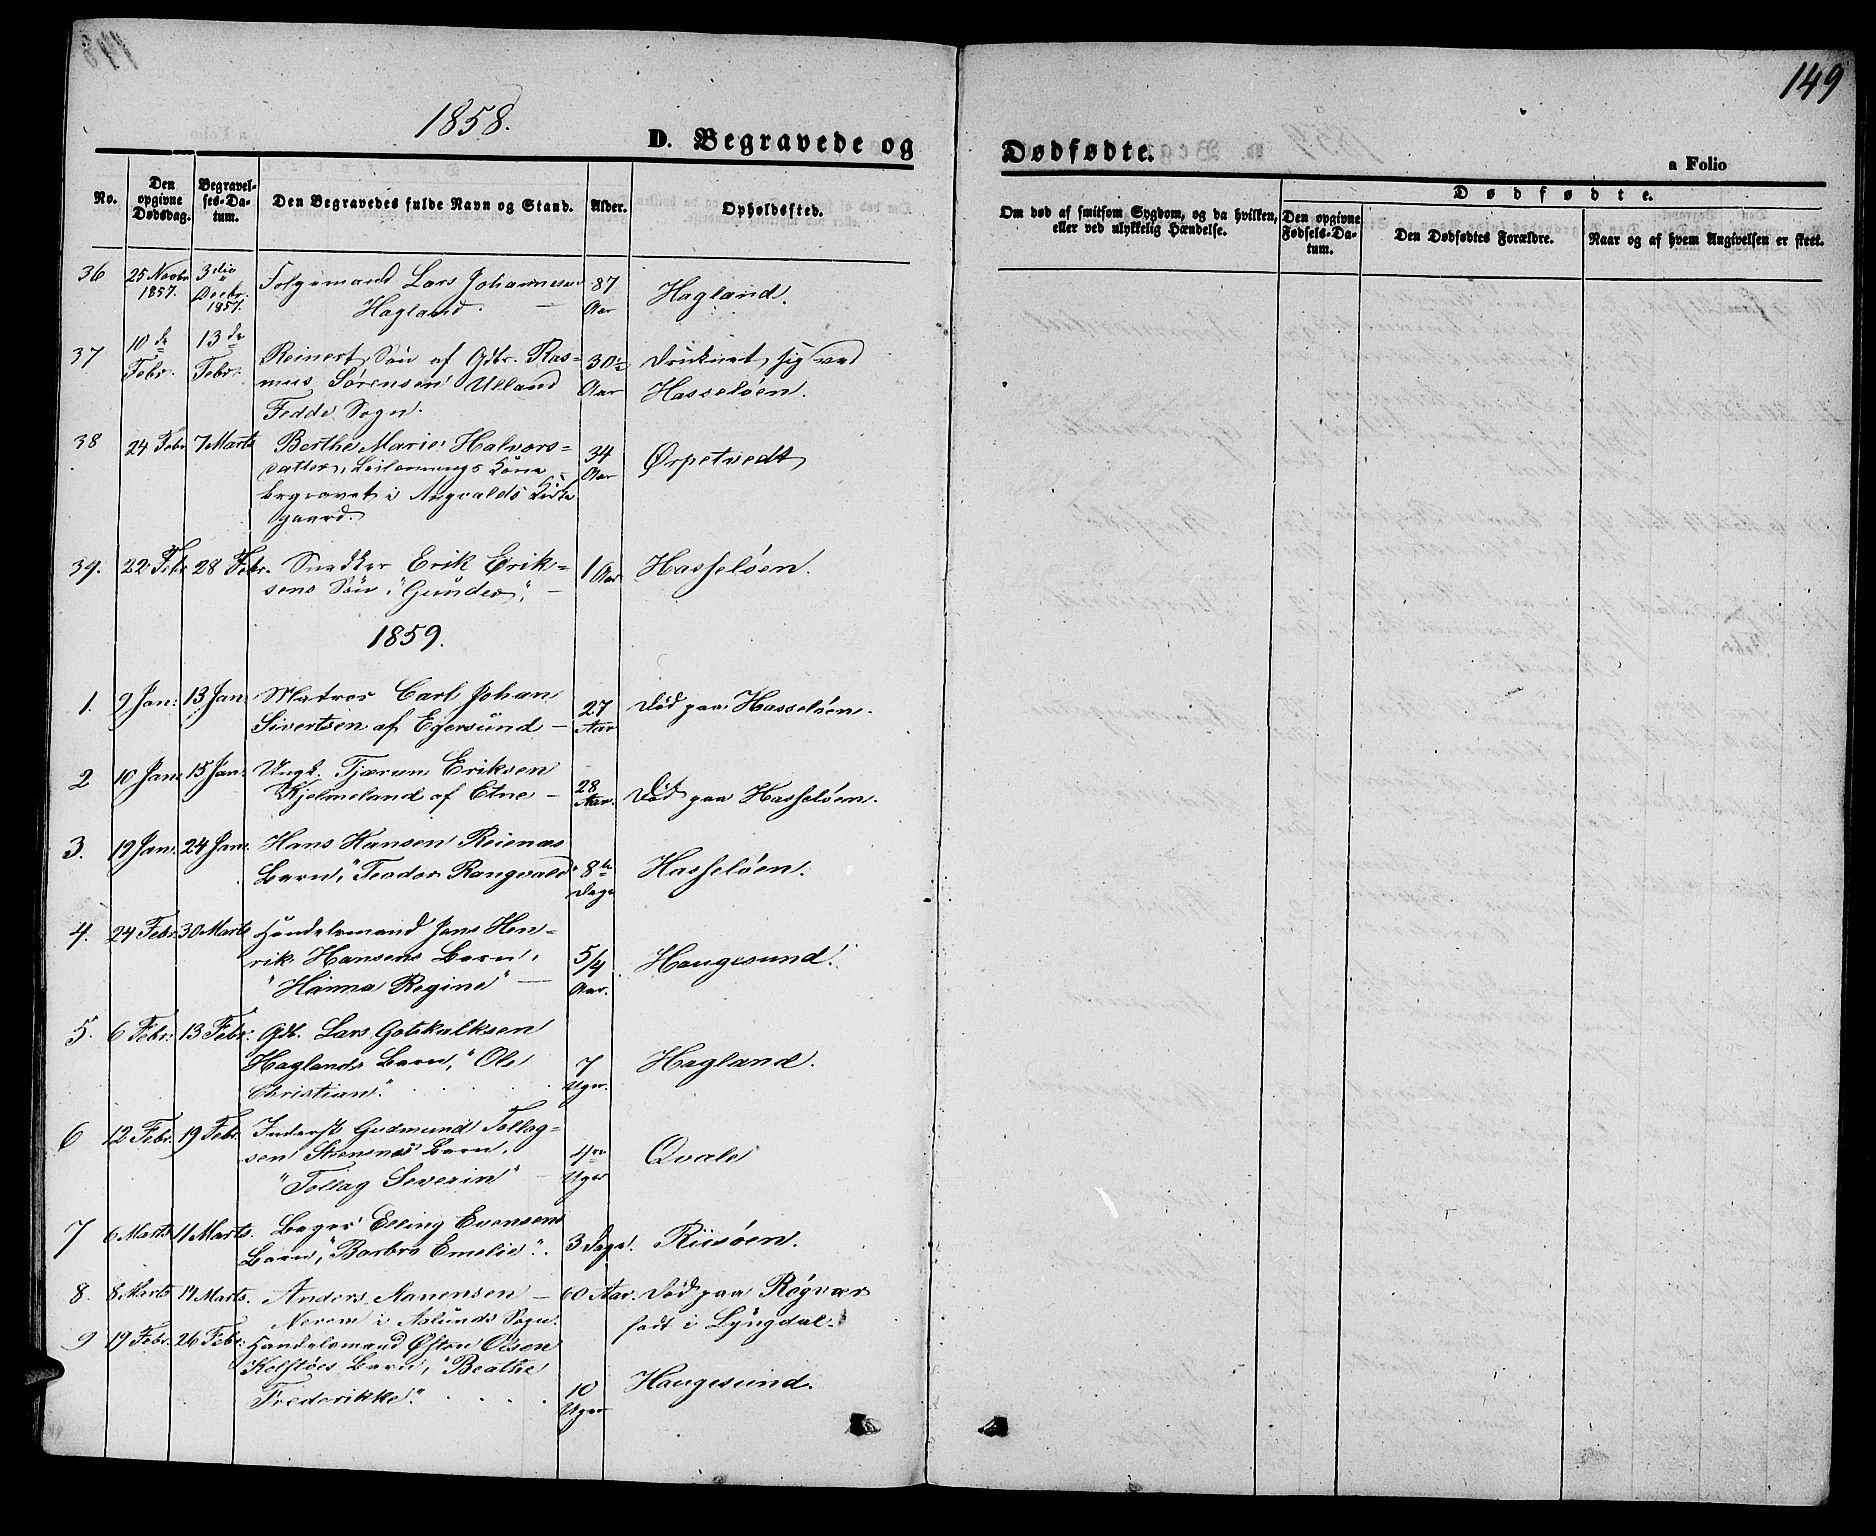 149
1858.
D. Begravede og Dødfødte.
a Folio
No.
Den opgivne Dødsdag.
Begravelses-Datum.
Den Begravedes fulde Navn og Stand.
Alder.
Opholdssted.
Om død af smitsom Sygdom, og da hvilken, eller ved ulykkelig Hændelse.
Dødfødte.
Den opgivne Fødsels-Datum.
Den Dødfødtes Forældre.
Naar og af hvem Angivelsen er skeet.
36 25 Novbr 1857. 3die Decbr. 1857. Lars Johannesen 87
Hagland. Aar Hagland.
37 10de Febr. 13de Febr. Reinert, Søn af Gdbr. Ras= 30 Druknet sig ved
mus Sørensen Ulland Aar Hasseløen.
Fedde Sogn.
38 24 Febr 7 Marts Berthe Marie Halvors= 34 Ørpetvedt
datter, Leilændings Kone Aar
begravet i Augvalds Kirke
gaard.
39. 22 Febr 28 Febr. Snedker Erik Erik= 1 Aar Hasseløen.
sens Søn, "Gunder",
1859.
1. 9 Jan: 13 Jan: Matros Carl Johan 27 Død paa Hasseløen.
Sivertsen af Egersund — Aar
2 10 Jan: 15 Jan: Ungk. Tjæran Eriksen 28 Død paa Hasseløen.
Kjelmeland af Etne — Aar.
3. 19 Jan: 24 Jan: Hans Hansen Reienæs 8te Hasseløen.
Barn, "Teodor Rangvald" Dage
4. 24 Febr. 30 Marts Handelsmand Jens Hen=
rik Hansens Barn, 5/4 Haugesund.
"Hanna Regine" — Aar.
5. 6 Febr: 13 Febr: Gdb. Lars Gotskalksen
Haglands Barn, "Ole 7 Hagland.
Christian". Uger.
6 12 Febr. 19 Febr. Inderst Gudmund Tollag=
sen Stensnes Barn, 4re Qvale
"Tollag Severin" — Uger
7 6 Marts 11 Marts. Bager Elling Evensens
Barn, "Barbro Emelie". 3 Dage. Riisøen.
8. 8 Marts 14 Marts. Anders Aanensen — 60 Aar. Død paa Røgvær
Nerem i Aslunds Sogn. født i Lyngdal.
9 19 Febr. 26 Febr: Handelsmand Østen Olson
Kolstøes Barn, "Beathe 10 Haugesund.
Frederikke". Uger